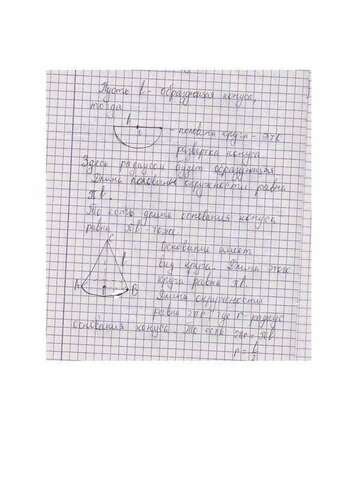 Пусть l - образующая конуса,
тогда
l
- половина круга - это
развертка конуса
Здесь радиусом будет образующая
Длина половины окружности равна
πl.
То есть длина основания конуса
равна πl тоже.
Основание имеет
l
вид круга. Длина этого
круга равна πl.
A B
Длина окружности
равна 2πr где r - радиус
основания конуса то есть 2πr = πl
r = l/2